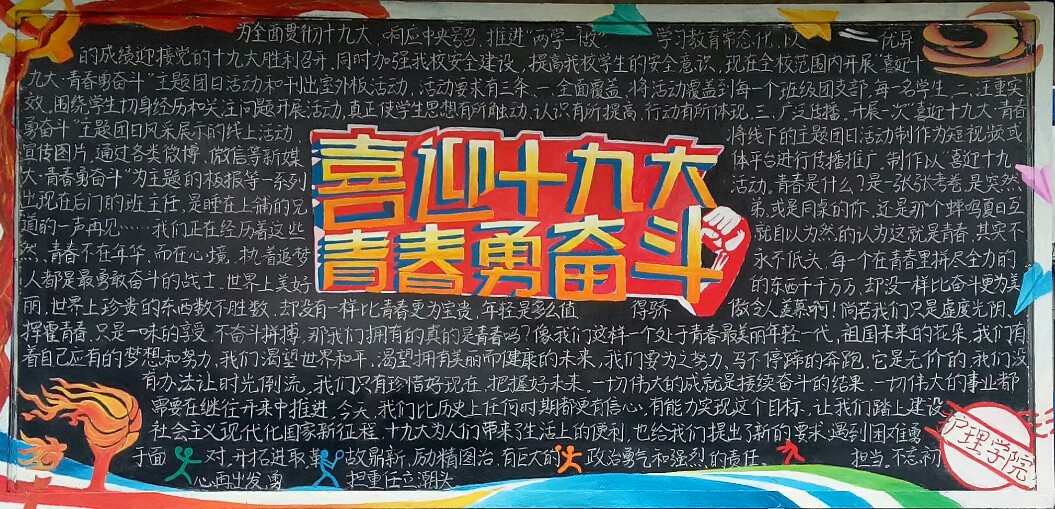 为全面贯彻十九大，响应中央号召，推进“两学一做” 学习教育常态化，以 优异
的成绩迎接党的十九大胜利召开，同时加强我校安全建设，提高我校学生的安全意识，现在全校范围内开展“喜迎十
九大·青春勇奋斗”主题团日活动和刊出室外板活动，活动要求有三条，一、全面覆盖，将活动覆盖到每一个班级团支部，每一名学生，二、注重实
效，围绕学生切身经历和关注问题开展活动，真正使学生思想有所触动、认识有所提高、行动有所体现，三、广泛传播，开展一次“喜迎十九大·青春
勇奋斗”主题团日风采展示的线上活动， 将线下的主题团日活动制作为短视频或
宣传图片，通过各类微博、微信等新媒 体平台进行传播推广，制作以“喜迎十九
大·青春勇奋斗”为主题的板报等一系列 活动。青春是什么？是一张张考卷，是突然
出现在后门的班主任，是睡在上铺的兄 弟，或是同桌的你，还是那个蝉鸣夏日互
道的一声再见……我们正在经历着这些 就自以为然的认为这就是青春，其实不
然，青春不在年华，而在心境，执着追梦 永不低头，每一个在青春里拼尽全力的
人都是最勇敢奋斗的战士，世界上美好 的东西千千万万，却没一样比奋斗更为美
丽，世界上珍贵的东西数不胜数，却没有一样比青春更为宝贵，年轻是多么值 得骄 傲令人羡慕啊！倘若我们只是虚度光阴、
挥霍青春，只是一味的享受，不奋斗拼搏，那我们拥有的真的是青春吗？像我们这样一个处于青春最美丽年轻一代，祖国未来的花朵，我们有
着自己应有的梦想和努力，我们渴望世界和平，渴望拥有美丽而健康的未来，我们要为之努力、马不停蹄的奔跑，它是无价的，我们没
有办法让时光倒流，我们只有珍惜好现在，把握好未来，一切伟大的成就是接续奋斗的结果，一切伟大的事业都
需要在继往开来中推进，今天，我们比历史上任何时期都更有信心，有能力实现这个目标，让我们踏上建设
社会主义现代化国家新征程，十九大为人们带来了生活上的便利，也给我们提出了新的要求，遇到困难勇
于面 对，开拓进取，革 故鼎新，励精图治，有巨大的 政治勇气和强烈的责任、 担当。不忘初
心再出发，勇 担重任立潮头
喜迎十九大
青春勇奋斗
护理学院